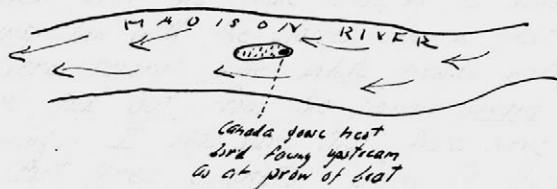 MADISON RIVER
Canada goose nest
bird facing upstream
as at prow of boat